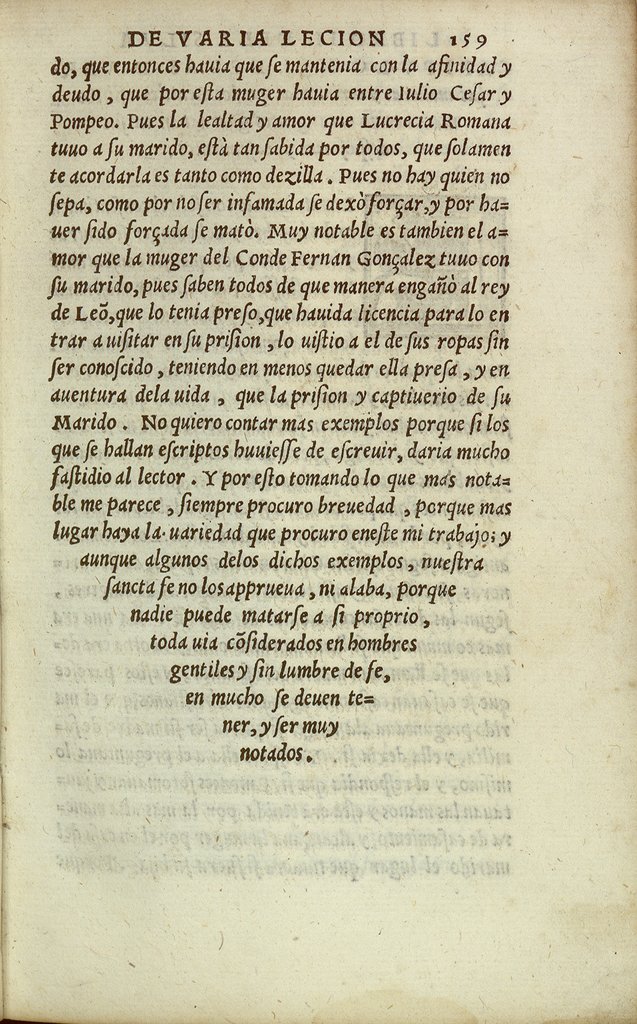 DE VARIA LECION 159
do, que entonces hauia que ſe mantenia con la afinidad y
deudo, que por eſta muger hauia entre Iulio Ceſar y
Pompeo. Pues la lealtad y amor que Lucrecia Romana
tuuo a ſu marido, eſtà tan ſabida por todos, que ſolamen
te acordarla es tanto como dezilla. Pues no hay quien no
ſepa, como por no ſer infamada ſe dexò forçar, y por ha=
uer ſido forçada ſe matò. Muy notable es tambien el a=
mor que la muger del Conde Fernan Gonçalez tuuo con
ſu marido, pues ſaben todos de que manera engañò al rey
de Leõ, que lo tenia preſo, que hauida licencia para lo en
trar a uiſitar en ſu priſion, lo uiſtio a el de ſus ropas ſin
ſer conoſcido, teniendo en menos quedar ella preſa, y en
auentura dela uida, que la priſion y captiuerio de ſu
Marido. No quiero contar mas exemplos porque ſi los
que ſe hallan eſcriptos huuieſſe de eſcreuir, daria mucho
faſtidio al lector. Y por eſto tomando lo que mas nota=
ble me parece, ſiempre procuro breuedad, porque mas
lugar haya la uariedad que procuro eneſte mi trabajo; y
aunque algunos delos dichos exemplos, nueſtra
ſancta fe no los apprueua, ni alaba, porque
nadie puede matarſe a ſi proprio,
toda uia cõſiderados en hombres
gentiles y ſin lumbre de fe,
en mucho ſe deuen te=
ner, y ſer muy
notados.